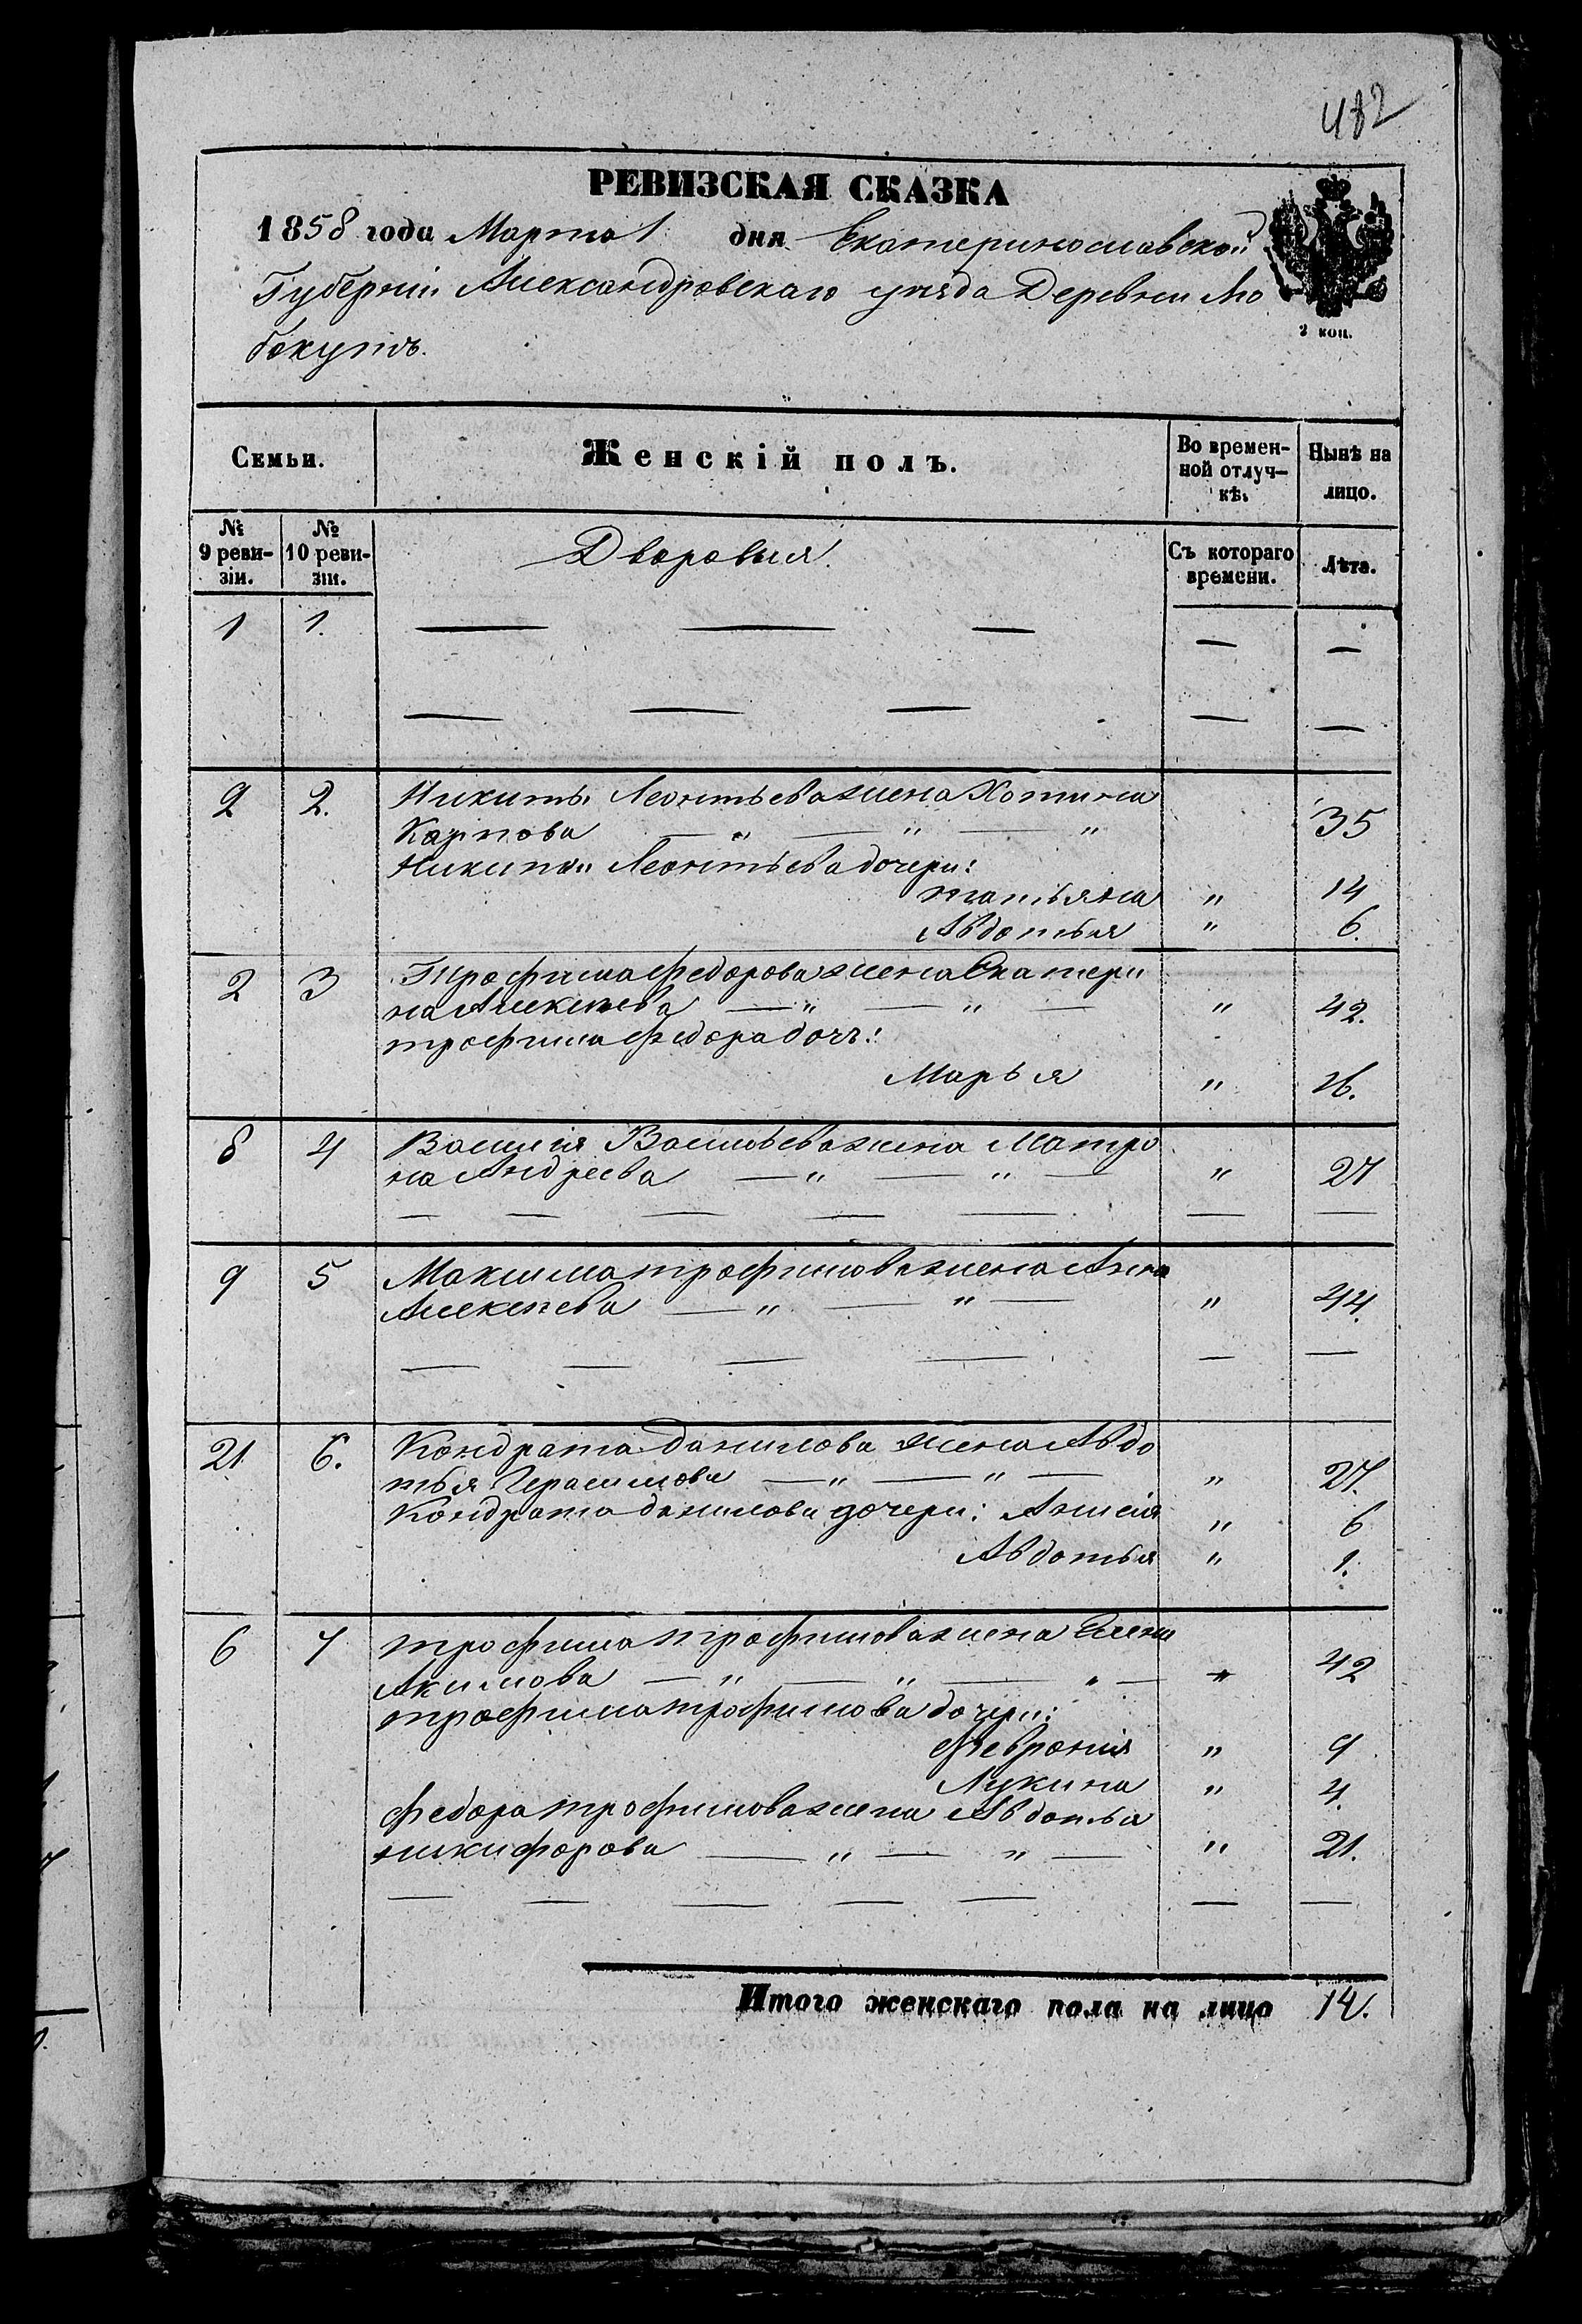 482
РЕВИЗСКАЯ СКАЗКА
1858 года Марта 1 дня Екатеринославской
Губерніи Александровскаго уезда Деревни Лю
бокутъ.
2 коп.
Семьи.
Женскій полъ.
Во времен-
ной отлуч-
кѣ.
Нынѣ на
лицо.
№
9 реви-
зіи.
№
10 реви-
зіи.
Дворовыя.
Съ котораго
времени.
Лѣта.
1 1. — — — — —
— — — — —
2 2. Никиты Леонтьева жена Хотина
Карпова — " — " — " 35
Никиты Леонтьева дочери:
татьяна " 14
Авдотья " 6.
2 3 Трофима федорова жена Екатери
на Алексеева — " — " — " 42.
трофима федора дочь:
Марья " 16.
8 4 Василія Васильева жена Матро
на Андреева — " — " — " 27
— — — — — — —
9 5 Максима трофимова жена Анна
Алексеева — " — " — " 44.
— — — — — —
21 6. Кондрата данилова жена Авдо
тья Герасимова — " — " — " 27.
Кондрата данилова дочери: Анисія " 6
Авдотья " 1.
6 7 трофима трофимова жена Елена
Акимова — " — " — " — " 42
трофима трофимова дочери:
Февронія " 9
Лукина " 4.
федора трофимова жена Авдотья
никифорова — " — " — " 21.
— — — — — — —
Итого женскаго пола на лицо 14.